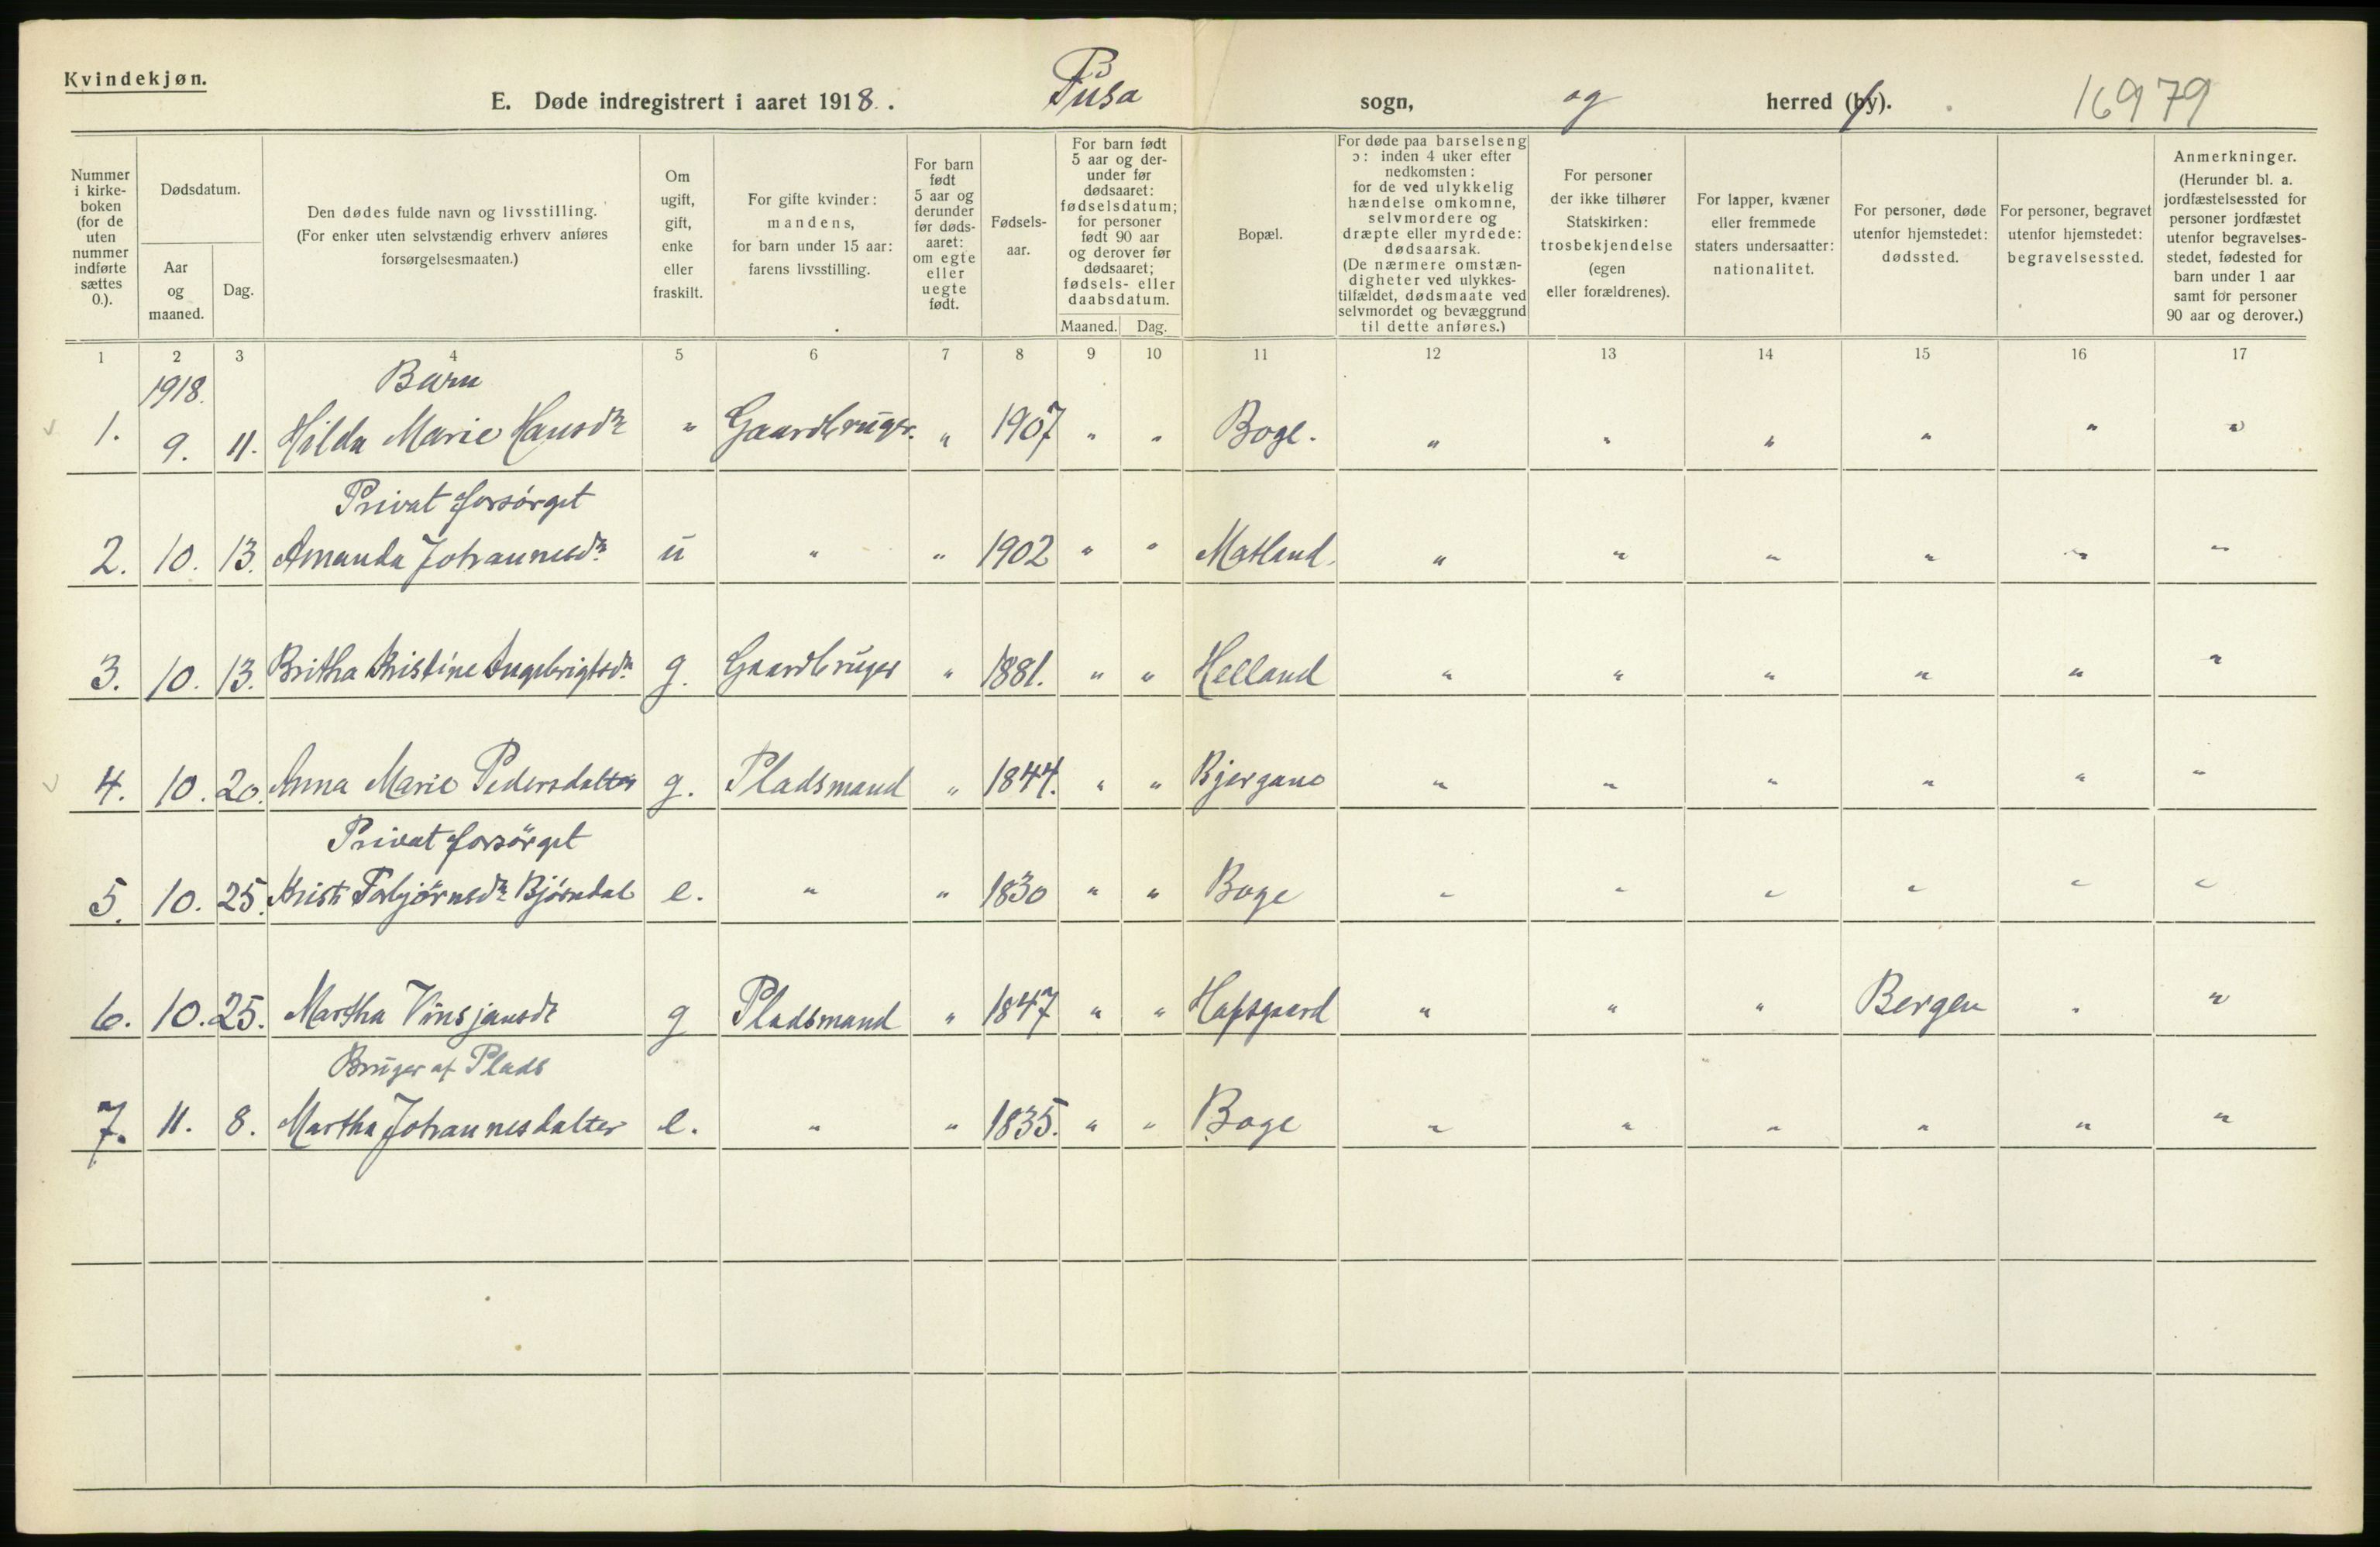 Kvindekjøn.
E. Døde indregistrert i aaret 1918. Fusa sogn, og herred (by). 16979
Nummer i kirkeboken (for de uten nummer indførte sættes 0.).
Dødsdatum.
Aar og maaned.
Dag.
Den dødes fulde navn og livsstilling. (For enker uten selvstændig erhverv anføres forsørgelsesmaaten.)
Om ugift, gift, enke eller fraskilt.
For gifte kvinder: mandens, for barn under 15 aar: farens livsstilling.
For barn født 5 aar og derunder før dødsaaret: om egte eller uegte født.
Fødselsaar.
For barn født 5 aar og derunder før dødsaaret: fødselsdatum; for personer født 90 aar og derover før dødsaaret; fødsels- eller daabsdatum.
Maaned. Dag.
Bopæl.
For døde paa barselseng ɔ: inden 4 uker efter nedkomsten: for de ved ulykkelig hændelse omkomne, selvmordere og dræpte eller myrdede: dødsaarsak. (De nærmere omstændigheter ved ulykkestilfældet, dødsmaate ved selvmordet og bevæggrund til dette anføres.)
For personer der ikke tilhører Statskirken: trosbekjendelse (egen eller forældrenes).
For lapper, kvæner eller fremmede staters undersaatter: nationalitet.
For personer, døde utenfor hjemstedet: dødssted.
For personer, begravet utenfor hjemstedet: begravelsessted.
Anmerkninger. (Herunder bl. a. jordfæstelsessted for personer jordfæstet utenfor begravelsesstedet, fødested for barn under 1 aar samt for personer 90 aar og derover.)
1 2 3 4 5 6 7 8 9 10 11 12 13 14 15 16 17
1918. Barn
1. 9. 11. Hilda Marie Hansdr " Gaardbruger. " 1907 " " Boge. " " " " " "
Privat forsørget
2. 10. 13. Amanda Johannesdr u " " 1902 " " Matland. " " " " " "
3. 10. 13. Britha Kristine Ingebrigtsdr g. Gaardbruger " 1881. " " Helland " " " " " "
4. 10. 20. Anna Marie Pedersdatter g. Pladsmand " 1844. " " Bjergane " " " " " "
Privat forsørget
5. 10. 25. Kristi Torbjørnsdr Bjørndal e. " " 1830 " " Boge " " " " " "
6. 10. 25. Martha Vinsjansdr g Pladsmand " 1847 " " Hafsgaard " " " Bergen " "
Bruger af Plads
7. 11. 8. Martha Johannesdatter e. " " 1835. " " Boge " " " " " "